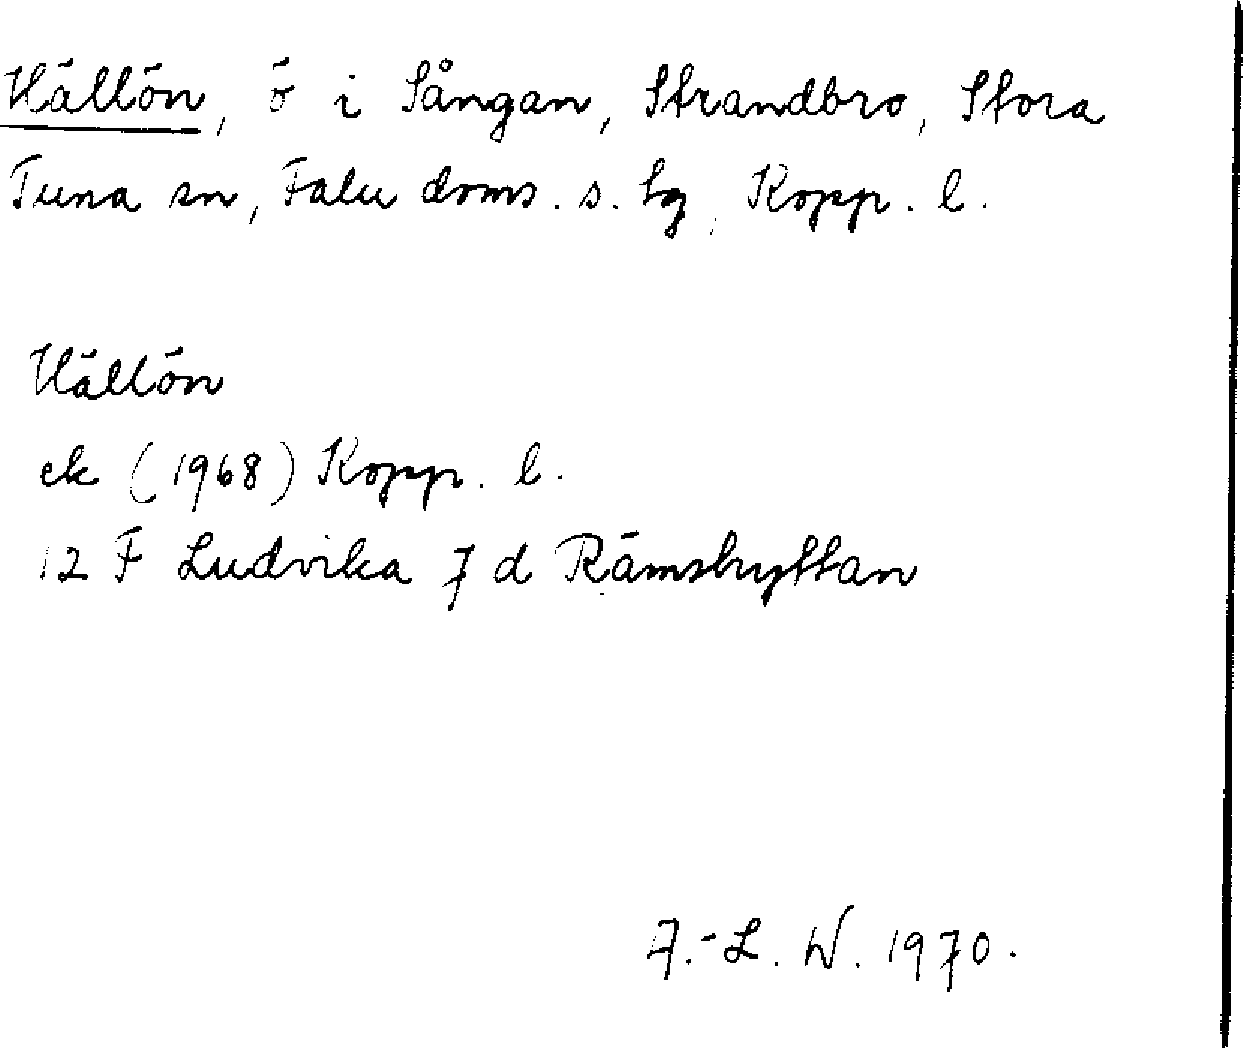 Hällön, ö i Sången, Strandbro, Stora
Tuna sn, Falu doms. s. tg, Kopp. l.
Hällön
ek (1968) Kopp. l.
12 F Ludvika 7 d Rämshyttan
A.-L. W. 1970.